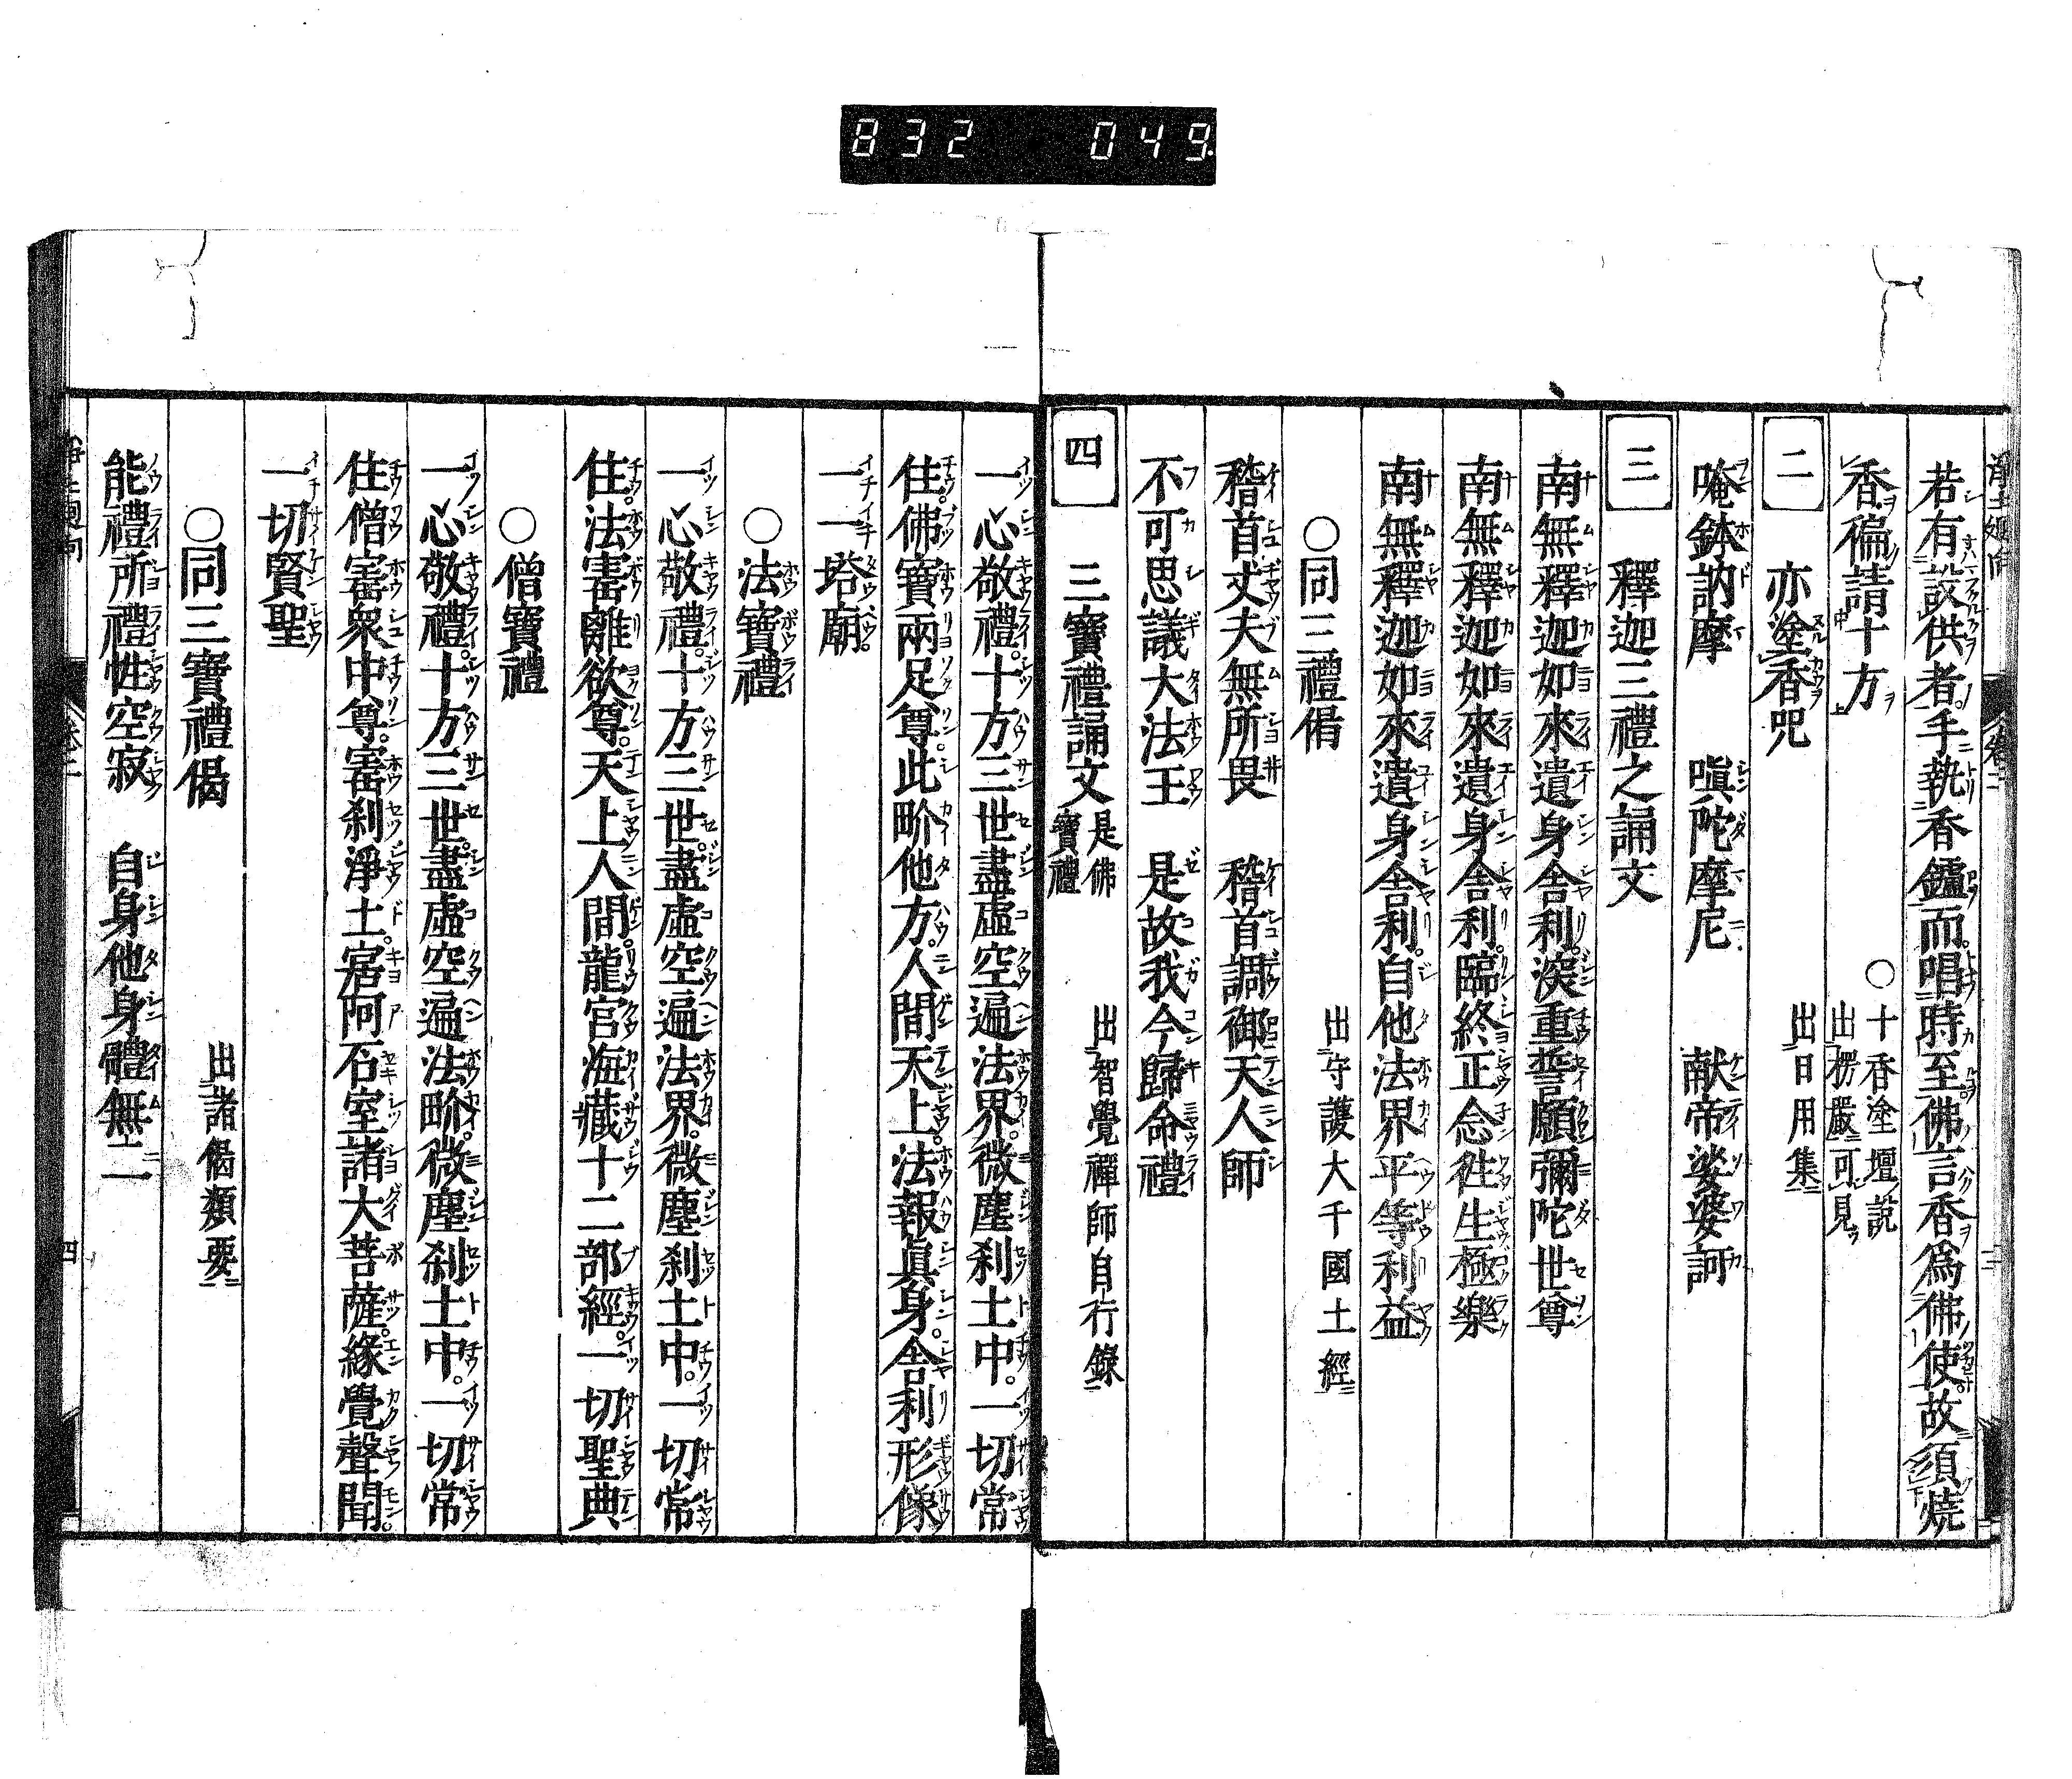 832 049
若有設供者手執香鑪而唱時至佛言香爲佛使故須燒
香徧請十方 ○十香塗壇說
出楞嚴可見
二 亦塗香呪 出日用集
唵鉢訥摩 嗔陀摩尼 献帝娑婆訶
三 釋迦三禮之誦文
南無釋迦如來遺身舍利滅重誓願彌陀世尊
南無釋迦如來遺身舍利臨終正念徃生極樂
南無釋迦如來遺身舍利自他法界平等利益
○同三禮偈 出守護大千國土經
稽首丈夫無所畏 稽首調御天人師
不可思議大法王 是故我今歸命禮
四 三寶禮誦文 是佛
寶禮 出智覺禪師自行錄
一心敬禮十方三世盡虛空遍法界微塵刹土中一切常
住佛寶兩足尊此畍他方人間天上法報眞身舍利形像
一一塔廟
○法寶禮
一心敬禮十方三世盡虛空遍法界微塵刹土中一切常
住法寚離欲尊天上人間龍宮海藏十二部經一切聖典
○僧寶禮
一心敬禮十方三世盡虛空遍法畍微塵刹土中一切常
住僧寚衆中尊寚刹淨土居阿石室諸大菩薩緣覺聲聞
一切賢聖
○同三寶禮偈 出諸偈類要
能禮所禮性空寂 自身他身體無二
四